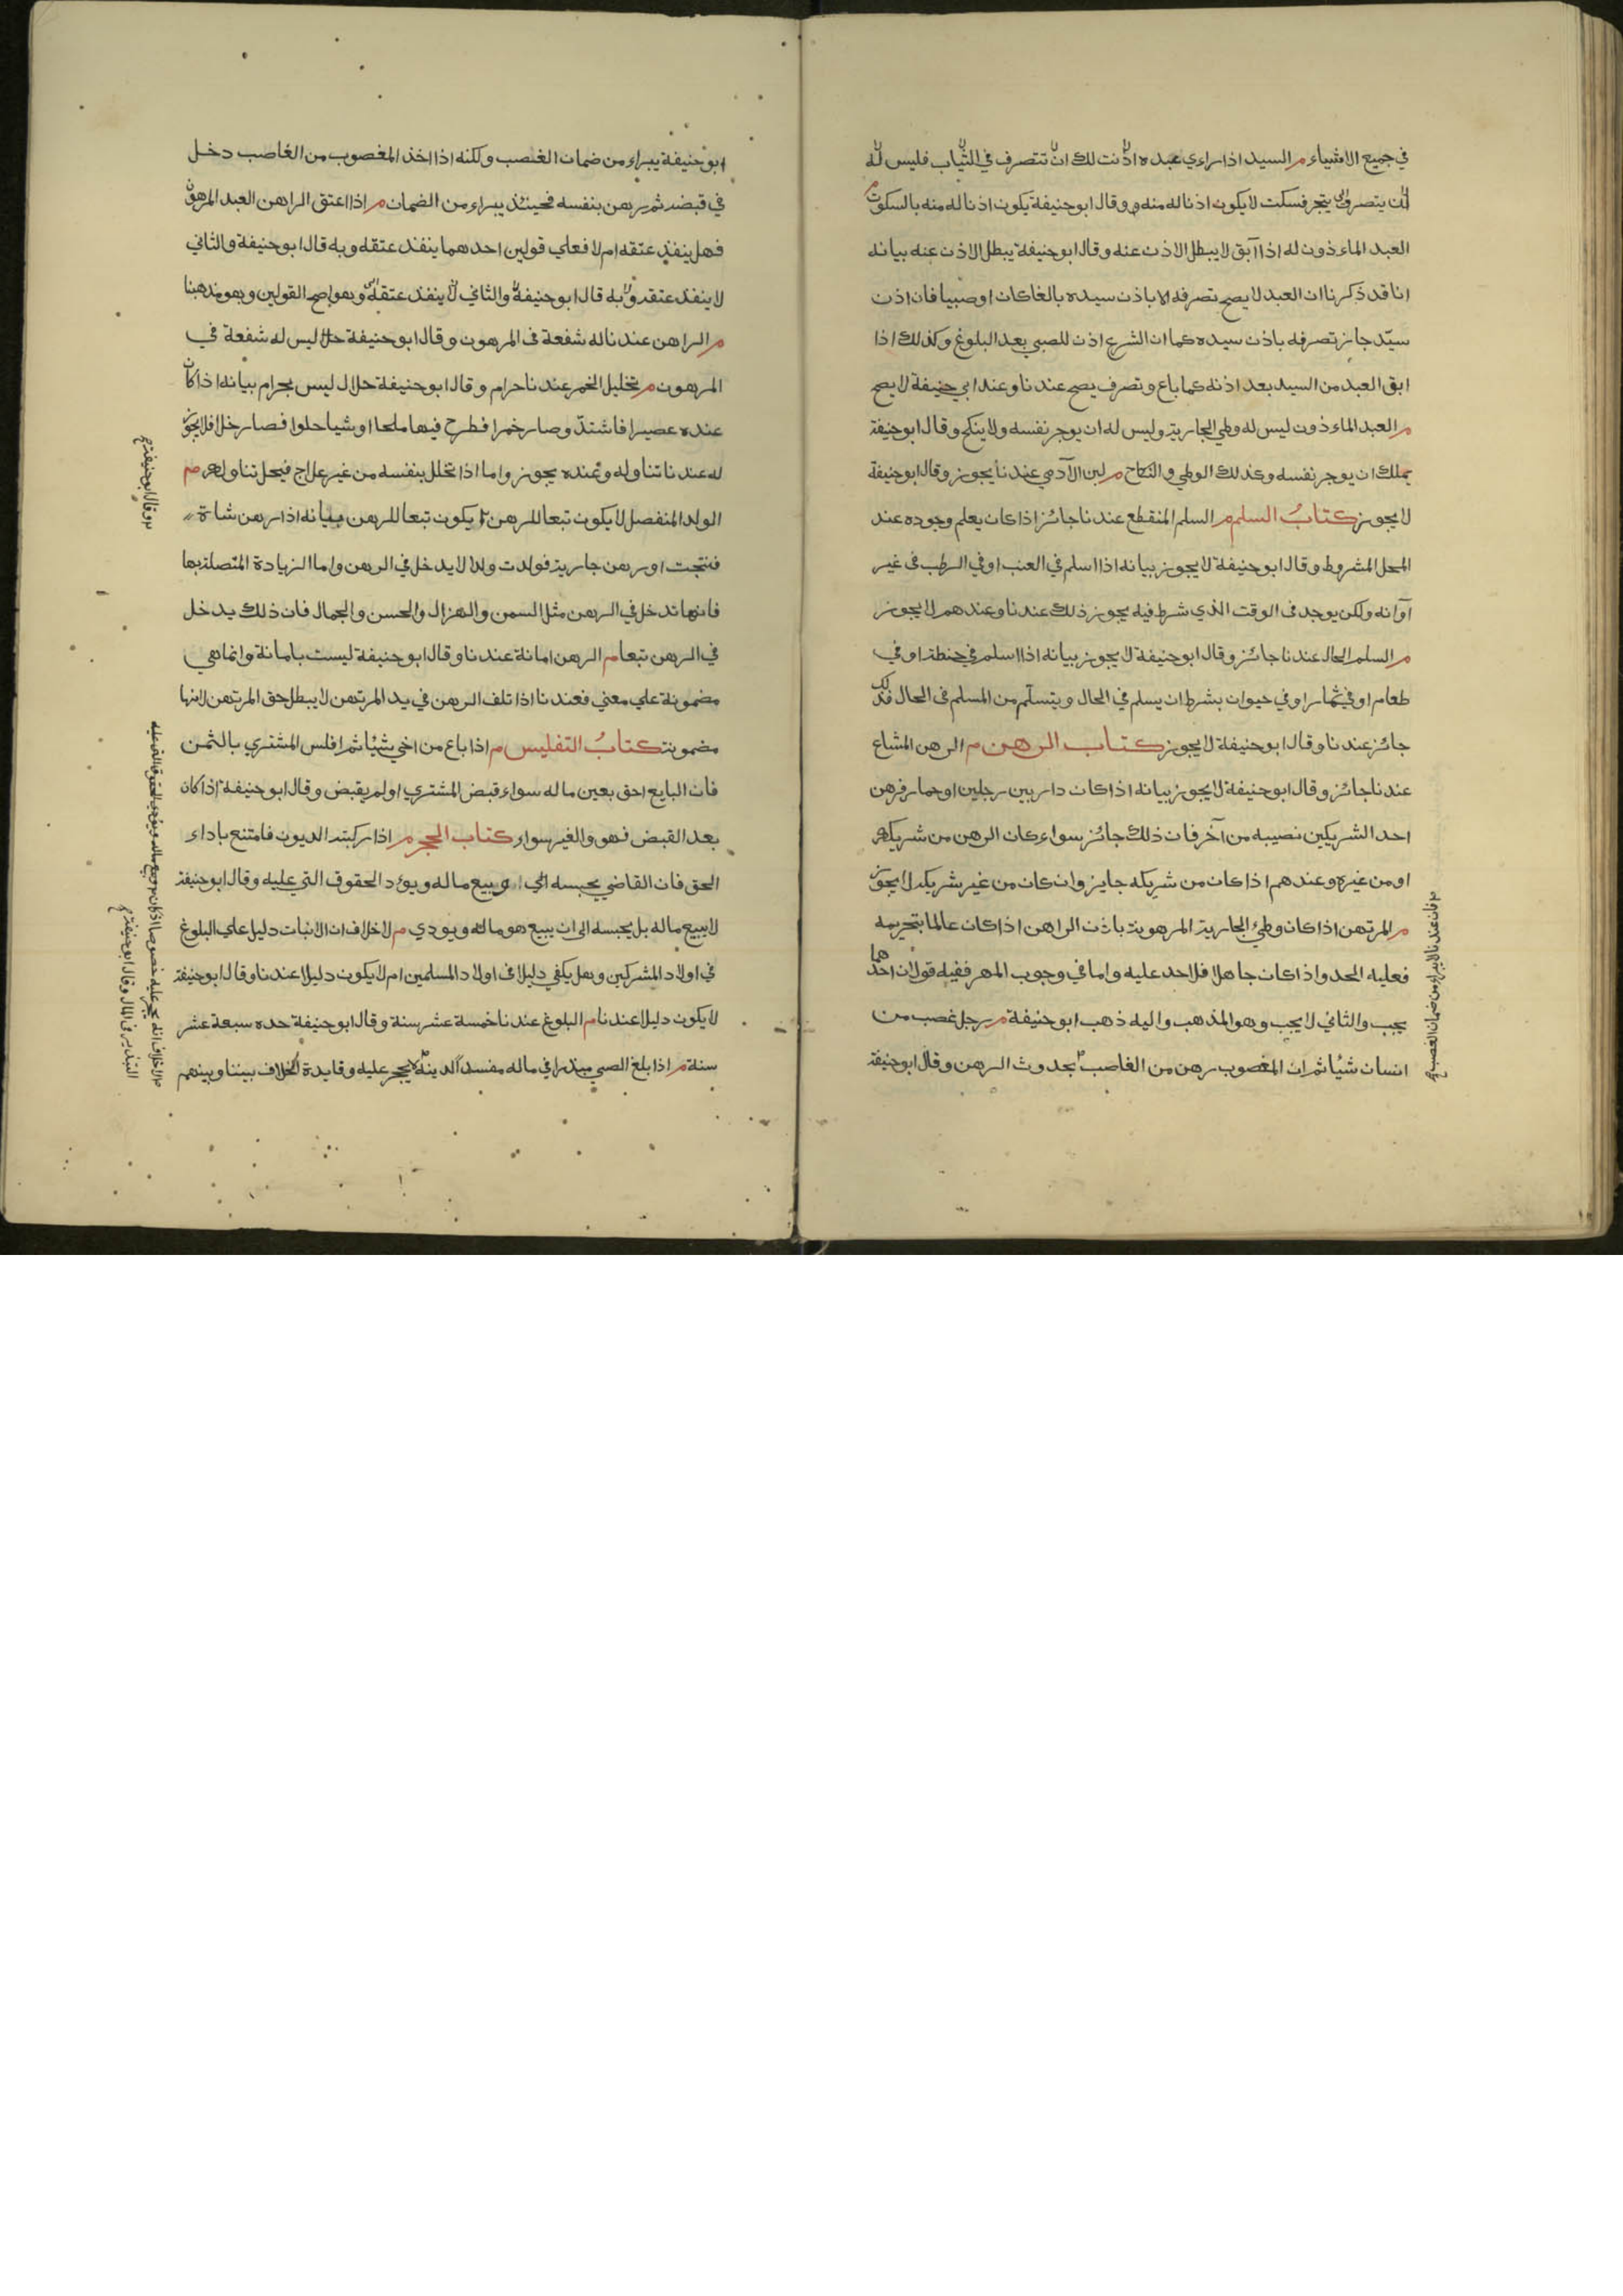 في جميع الاشياء م السيد اذا راءي عبده اذنت لك ان تتصرف في الثياب فليس له
ان يتصرف يتجر فسكت لا يكون اذنا له منه وقال ابو حنيفة يكون اذنا له منه بالسكوت م
العبد الماءذون له اذا ابق لا يبطل الاذن عنه وقال ابو حنيفة يبطل الاذن عنه بيانه
انا قد ذكرنا ان العبد لا يصح تصرفه الا باذن سيده بالغا كان او صبيا فان اذن
سيّد جاز تصرفه باذن سيده كما ان الشرع اذن للصبي بعد البلوغ وكذلك اذا
ابق العبد من السيد بعد اذنه كما باع وتصرف يصح عندنا وعند ابي حنيفة لا يصح
م العبد الماءذون ليس له وطي الجارية وليس له ان يوجر نفسه ولا ينكح وقال ابو حنيفة
يملك ان يوجر نفسه وكذلك الوطي والنكاح م لبن الآدمي عندنا يجوز وقال ابو حنيفة
لا يجوز كتابُ السلم م السلم المنقطع عندنا جائز اذا كان يعلم وجوده عند
المحل المشروط وقال ابو حنيفة لا يجوز بيانه اذا اسلم في العنب او في الرطب فى غير
آوانه ولكن يوجد فى الوقت الذي شرط فيه يجوز ذلك عندنا وعندهم لا يجوز
م السلم الحال عندنا جائز وقال ابو حنيفة لا يجوز بيانه اذا اسلم في حنطة او في
طعام او في ثمار او في حيوان بشرط ان يسلم في الحال ويتسلّم من المسلم فى الحال فذلك
جائز عندنا وقال ابو حنيفة لا يجوز كتاب الرهن م الرهن المشاع
عندنا جائز وقال ابو حنيفة لا يجوز بيانه اذا كان دار بين رجلين او حمار فرهن
احد الشريكين نصيبه من آخر فان ذلك جائز سواء كان الرهن من شريكه
او من غيره وعندهم اذا كان من شريكه جايز وان كان من غير شريكه لا يجوز
م المرتهن اذا كان وطئ الجارية المرهونة باذن الراهن اذا كان عالما بتحريمه
فعليه الحد واذا كان جاهلا فلا حد عليه واما في وجوب المهر ففيه قولان احدهما
يجب والثاني لا يجب وهو المذهب واليه ذهب ابو حنيفة م رجل غصب من
انسان شيئا ثم ان المغصوب رهن من الغاصب بحدوث الرهن وقال ابو حنيفة
فان عندنا لا يبراء من ضمان الغصب
ابو حنيفة يبراء من ضمان الغصب ولكنه اذا اخذ المغصوب من الغاصب دخل
في قبضه ثم يرهن بنفسه فحينئذ يبراء من الضمان م اذا اعتق الراهن العبد المرهون
فهل ينفذ عتقه ام لا فعلي قولين احدهما ينفذ عتقه وبه قال ابو حنيفة والثاني
لا ينفذ عتقه وبه قال ابو حنيفة والثاني لا ينفذ عتقه وهو اصح القولين وهو مذهبنا
م الراهن عندنا له شفعة فى المرهون وقال ابو حنيفة ليس له شفعة في
المرهون م تخليل الخمر عندنا حرام وقال ابو حنيفة حلال ليس بحرام بيانه اذا كان
عنده عصيرا فاشتدّ وصار خمرا فطرح فيها ملحا او شيا حلوا فصار خلا فلا يجوز
له عندنا تناوله وعنده يجوز واما اذا تخلل بنفسه من غير علاج فيحل تناوله م
الولد المنفصل لا يكون تبعا للرهن يكون تبعا للرهن بيانه اذا رهن شاة
فنتجت او رهن جارية فولدت ولدا لا يدخل في الرهن واما الزيادة المتصلة بها
فانها تدخل في الرهن مثل السمن والهزال والحسن والجمال فان ذلك يدخل
في الرهن تبعا م الرهن امانة عندنا وقال ابو حنيفة ليست بامانة وانما هي
مضمونة علي معني فعندنا اذا تلف الرهن في يد المرتهن لا يبطل حق المرتهن لانها
مضمونة كتابُ التفليس م اذا باع من اخي شيئا ثم افلس المشتري بالثمن
فان البايع احق بعين ماله سواء قبض المشتري او لم يقبض وقال ابو حنيفة اذا كان
بعد القبض فهو والغير سواء كتاب الحجر م اذا ركبته الديون فامتنع باداء
الحق فان القاضي يحبسه ويبيع ماله ويؤد الحقوق التي عليه وقال ابو حنيفة
لا يبيع ماله بل يحبسه الى ان يبيع هو ماله ويودي م لا خلاف ان الانبات دليل علي البلوغ
في اولاد المشركين وهل يكفي دليلا فى اولاد المسلمين ام لا يكون دليلا عندنا وقال ابو حنيفة
لا يكون دليلا عندنا م البلوغ عندنا خمسة عشر سنة وقال ابو حنيفة حده سبعة عشر
سنة م اذا بلغ الصبي مبذرا في ماله مفسدا لدينه لا يحجر عليه وفايدة الخلاف بيننا وبينهم
وقال ابو حنيفة
لا خلاف انه يحجر عليه خصوصا اذا كان
التبذير فى المال وقال ابو حنيفة